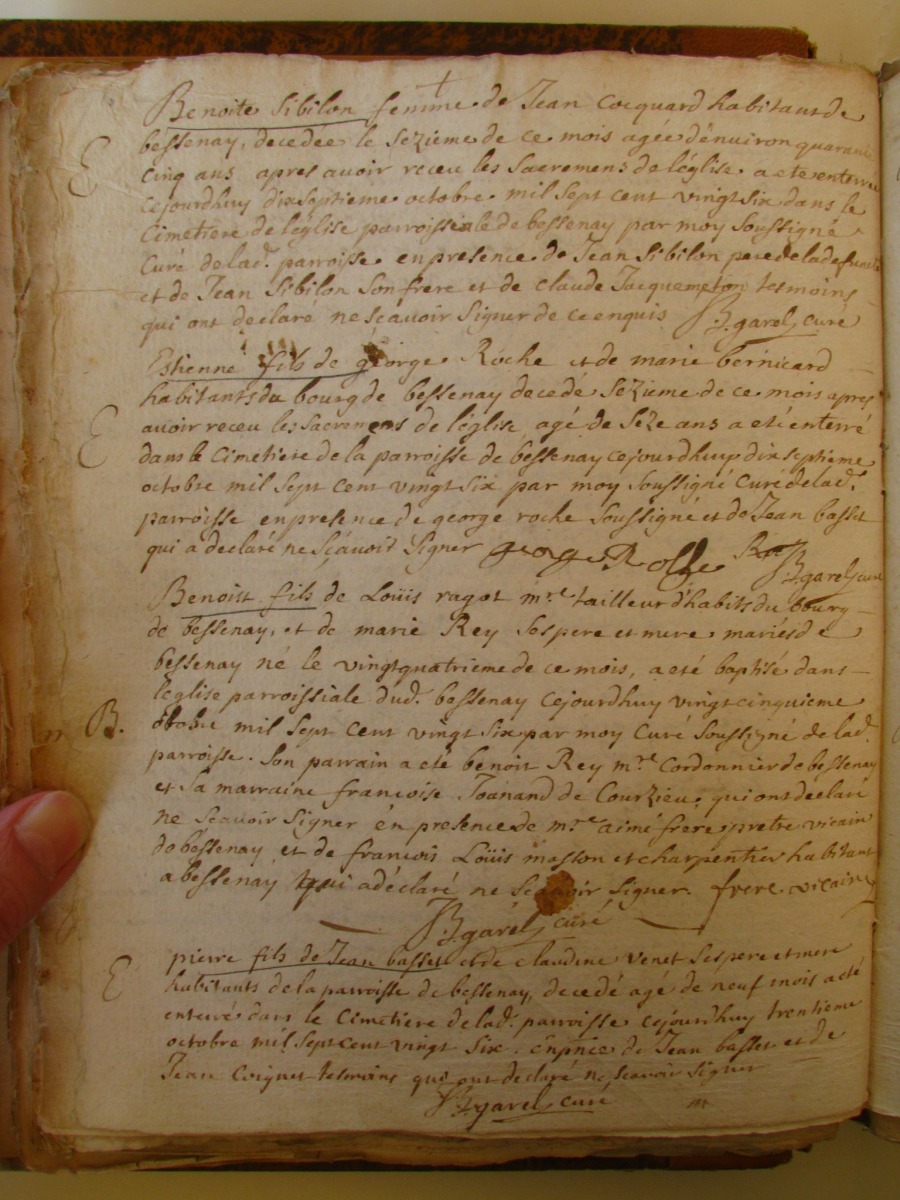 Benoite Sibilon femme de Jean Cocquard habitant de
bessenay, decedée le Sezieme de ce mois agée d'enuiron quarante
E
Cinq ans apres auoir receu les Sacremens de l'église a ete enterrée
cejourdhuy dix Septieme octobre mil Sept cent vingt six dans le
Cimetiere de l'église parroissiale de bessenay par moy Soussigné
Curé de lad. parroisse en presence de Jean Sibilon pere de la defuncte
et de Jean Sibilon Son frere et de claude Jacquemeton tesmoins
qui ont declaré ne Sçauoir Signer de ce enquis garel curé
Estienne fils de george Roche et de marie bernicard
habitants du bourg de bessenay decedé Sezieme de ce mois apres
auoir receu les Sacremens de l'église agé de Seze ans a eté enterré
E
dans le Cimetiere de la parroisse de bessenay cejourdhuy dix septieme
octobre mil Sept Cent vingt Six par moy Soussigné Curé de lad.
parroisse en presence de george roche Soussigné et de Jean basset
qui a declaré ne Sçauoir Signer george garel curé
Benoist fils de Loüis ragot m.re tailleur d'habits du bourg
de bessenay, et de marie Rey Ses pere et mere mariés de
bessenay né le vingt quatrieme de ce mois, a eté baptisé dans
l'eglise parroissiale dud. bessenay cejourdhuy vingt cinquieme
B.
octobre mil Sept Cent vingt Six par moy Curé Soussigné de lad.
parroisse. Son parrain a eté benoist Rey m.re Cordonnier de bessenay
et Sa marraine francoise Joanand de Courzieu, qui ont declaré
ne Sçauoir Signer en presence de m.re aimé frere pretre vicaire
de bessenay et de francois Loüis masson et charpentier habitant
a bessenay qui a déclaré ne Sçauoir Signer. frere vicaire
garel curé
pierre fils de Jean basset et de claudine venet Ses pere et mere
E
habitants de la parroisse de bessenay, decedé agé de neuf mois a eté
enterré dans le Cimetiere de lad. parroisse cejourdhuy trentieme
octobre mil Sept cent vingt Six. En pnce de Jean basset et de
Jean Coignet tesmoins qui ont declaré ne Sçavoir Signer
garel curé